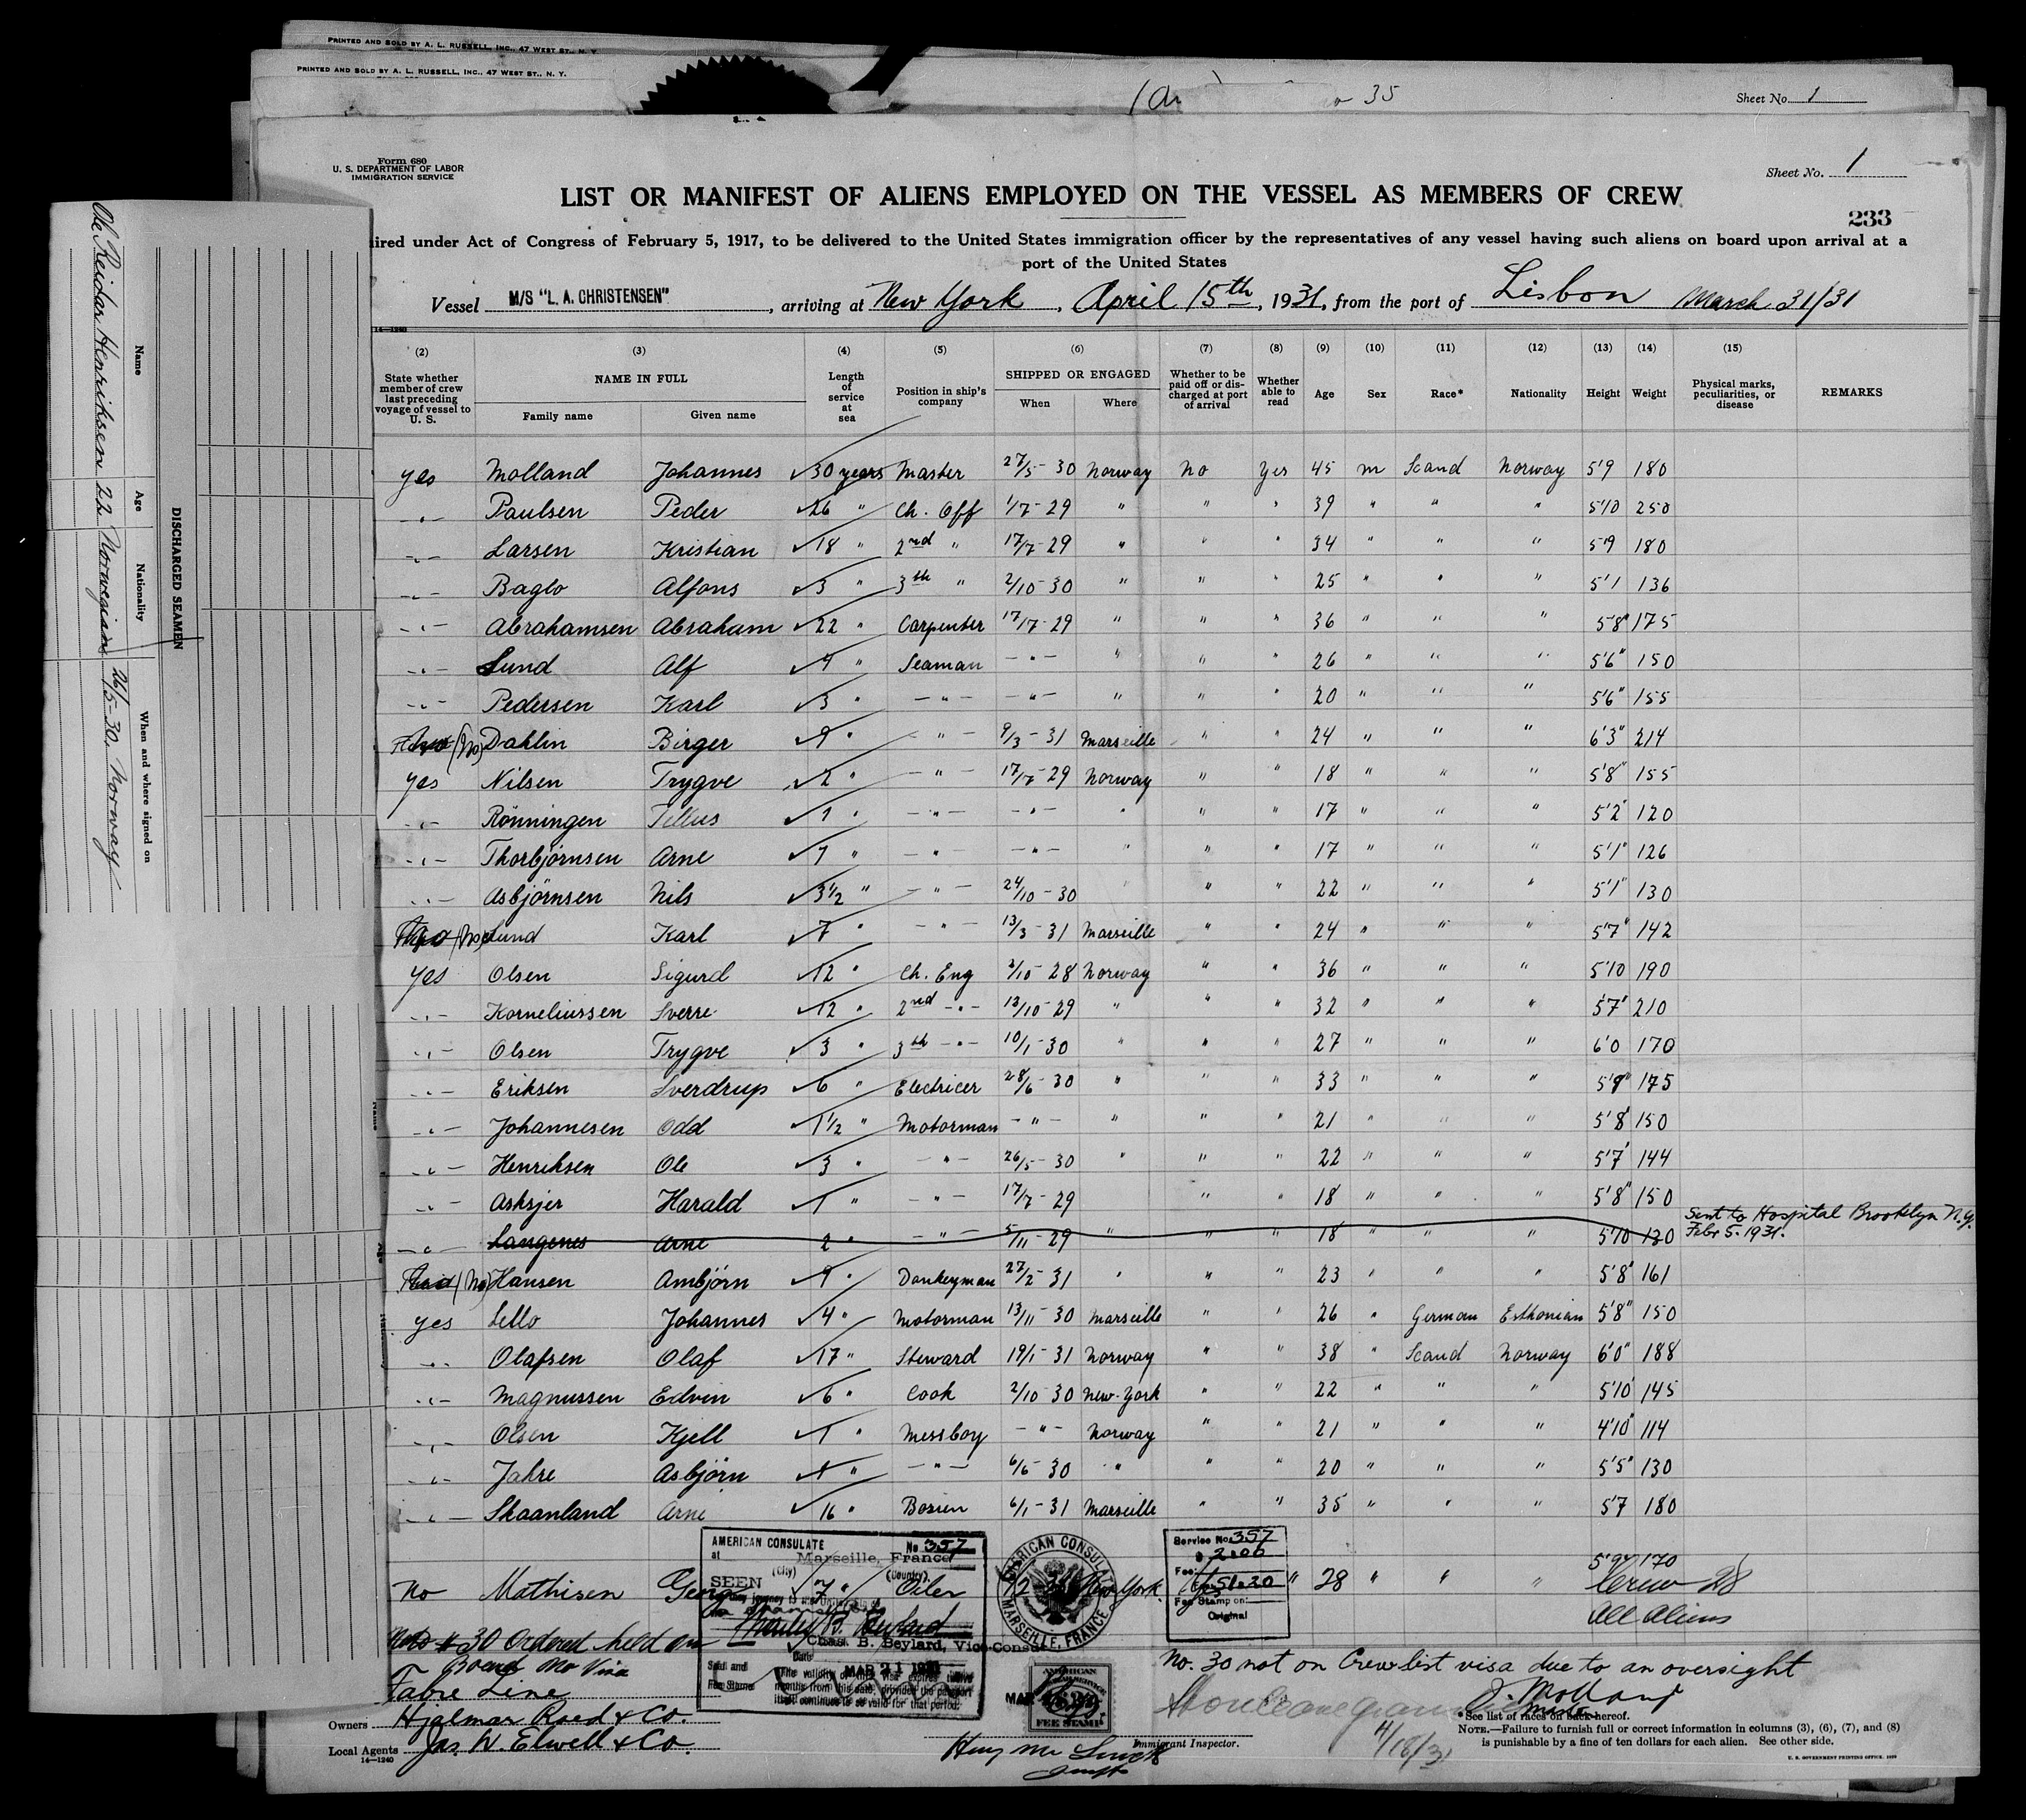 PRINTED AND SOLD BY A. L. RUSSELL, INC., 47 WEST ST., N. Y.
PRINTED AND SOLD BY A. L. RUSSELL, INC., 47 WEST ST., N. Y.
35
Sheet No. 1
Form 680
U. S. DEPARTMENT OF LABOR
IMMIGRATION SERVICE
Sheet No. 1
LIST OR MANIFEST OF ALIENS EMPLOYED ON THE VESSEL AS MEMBERS OF CREW
233
ired under Act of Congress of February 5, 1917, to be delivered to the United States immigration officer by the representatives of any vessel having such aliens on board upon arrival at a
port of the United States
Vessel M/S "L. A. CHRISTENSEN", arriving at New York, April 15th, 1931, from the port of Lisbon March 31/31
14-1240
(2) (3) (4) (5) (6) (7) (8) (9) (10) (11) (12) (13) (14) (15)
State whether member of crew last preceding voyage of vessel to U. S.
NAME IN FULL
Family name
Given name
Length of service at sea
Position in ship's company
SHIPPED OR ENGAGED
When
Where
Whether to be paid off or discharged at port of arrival
Whether able to read
Age
Sex
Race*
Nationality
Height
Weight
Physical marks, peculiarities, or disease
REMARKS
yes Molland Johannes 30 years Master 27/5-30 Norway No Yes 45 m Scand Norway 5'9 180
-"- Paulsen Peder 26 " Ch. Off 1/7-29 " " " 39 " " " 5'10 250
-"- Larsen Kristian 18 " 2nd " 17/7-29 " " " 34 " " " 5'9 180
-"- Baglo Alfons 3 " 3th " 2/10-30 " " " 25 " " " 5'1 136
-"- Abrahamsen Abraham 22 " Carpenter 17/7-29 " " " 36 " " " 5'8" 175
-"- Lund Alf 9 " Seaman -"- " " " 26 " " " 5'6" 150
-"- Pedersen Karl 3 " -"- -"- " " " 20 " " " 5'6" 155
(No) Dahlin Birger 9 " -"- 9/3-31 Marseille " " 24 " " " 6'3" 214
yes Nilsen Trygve 2 " -"- 17/7-29 Norway " " 18 " " " 5'8" 155
-"- Rönningen Tellus 1 " -"- -"- " " " 17 " " " 5'2" 120
-"- Thorbjörnsen Arne 1 " -"- -"- " " " 17 " " " 5'1" 126
-"- Asbjörnsen Nils 3 1/2 " -"- 24/10-30 " " " 22 " " " 5'1" 130
(No) Lund Karl 7 " -"- 13/3-31 Marseille " " 24 " " " 5'7" 142
yes Olsen Sigurd 12 " Ch. Eng 2/10-28 Norway " " 36 " " " 5'10 190
-"- Korneliussen Sverre 12 " 2nd -"- 13/10-29 " " " 32 " " " 5'7" 210
-"- Olsen Trygve 3 " 3th -"- 10/1-30 " " " 27 " " " 6'0 170
-"- Eriksen Sverdrup 6 " Electricer 28/6-30 " " " 33 " " " 5'9" 175
-"- Johannesen Odd 1 1/2 " Motorman -"- " " " 21 " " " 5'8" 150
-"- Henriksen Ole 3 " -"- 26/5-30 " " " 22 " " " 5'7" 144
-"- Asksjer Harald 1 " -"- 17/7-29 " " 18 " " " 5'8" 150
-"- Langenes Arne 2 " -"- 5/11-29 " " " 18 " " " 5'10 130 Sent to Hospital Brooklyn N.Y.
Febr 5. 1931.
(No) Hansen Ambjörn 9 " Donkeyman 27/2-31 " " " 23 " " " 5'8" 161
yes Lello Johannes 4 " Motorman 13/11-30 Marseille " " 26 " German Esthonian 5'8" 150
-"- Olafsen Olaf 17 " Steward 19/1-31 Norway " " 38 " Scand Norway 6'0" 188
-"- Magnussen Edvin 6 " Cook 2/10-30 New-York " " 22 " " " 5'10 145
-"- Olsen Kjell 1 " Messboy -"- Norway " " 21 " " " 4'10" 114
-"- Jahre Asbjörn 1 " -"- 6/5-30 " " " 20 " " " 5'5" 130
-"- Skaanland Arne 16 " Bosien 6/1-31 Marseille " " 35 " " " 5'7 180
No Mathisen Georg 7 " Oiler New York " 28 " " " 5'9 170
Crew 28
All Aliens
AMERICAN CONSULATE No. 357
at Marseille, France
(City) (Country)
SEEN
Chas. B. Beylard, Vice Consul
Date MAR 21 1931
Seal and
Fee Stamp
The validity of this visa expires twelve
months from this date, provided the passport
itself continues to be valid for that period.
AMERICAN CONSULATE
MARSEILLE, FRANCE
Service No. 357
Fee
Fee Stamp on
Original
AMERICAN
FEE STAMP
Note # 30 Ordered held on
Board No Visa
No. 30 not on Crew list visa due to an oversight
J. Molland
Master
Fabre Line
Owners Hjalmar Röed & Co.
Local Agents Jas. W. Elwell & Co.
14-1240
Immigrant Inspector.
4/18/31
* See list of races on back hereof.
NOTE.—Failure to furnish full or correct information in columns (3), (6), (7), and (8)
is punishable by a fine of ten dollars for each alien. See other side.
U. S. GOVERNMENT PRINTING OFFICE
DISCHARGED SEAMEN
Name Age Nationality When and where signed on
Ole Reidar Henriksen 22 Norwegian 26/5-30. Norway